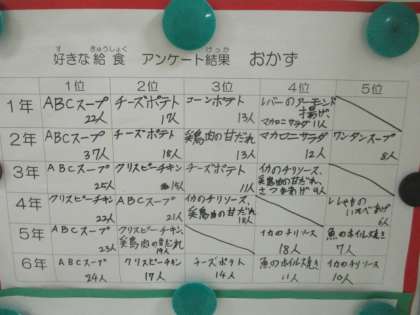 好きな給食 アンケート結果 おかず
す きゅうしょく けっか
1位 2位 3位 4位 5位
1年 ABCスープ 22人 チーズポテト 17人 コーンポテト 13人 レバーのアーモンド揚げ、マカロニサラダ 11人
2年 ABCスープ 37人 チーズポテト 18人 鶏肉の甘だれ 13人 マカロニサラダ 12人 ワンタンスープ 8人
3年 ABCスープ 25人 クリスピーチキン 15人 チーズポテト 11人 イカのチリソース、鶏肉の甘だれ、さつまあげ 9人
4年 クリスピーチキン 22人 ABCスープ 21人 イカのチリソース、鶏肉の甘だれ 18人 ししゃもの いそべあげ 6人
5年 ABCスープ 23人 クリスピーチキン、鶏肉の甘だれ 19人 イカのチリソース 18人 魚のホイル焼き 7人
6年 ABCスープ 24人 クリスピーチキン 17人 チーズポテト 14人 魚のホイル焼き 11人 イカのチリソース 10人